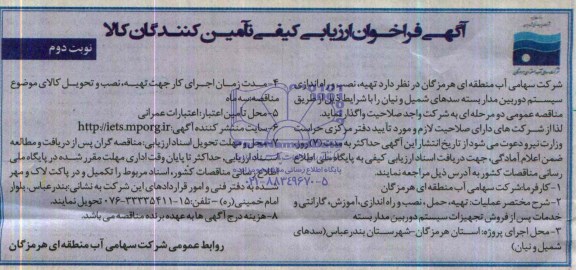 آگهی فراخوان ارزیابی کیفی تأمین کنندگان کالا
نوبت دوم
شرکت سهامی آب منطقه ای هرمزگان در نظر دارد تهیه، نصب و راه اندازی
سیستم دوربین مدار بسته سدهای شمیل و نیان را با شرایط ذیل از طریق
مناقصه عمومی دو مرحله ای به شرکت واجد صلاحیت واگذار نماید.
لذا از شرکت های دارای صلاحیت لازم و مورد تأیید دفتر مرکزی حراست
وزارت نیرو دعوت می شود از تاریخ انتشار این آگهی حداکثر به مدت روز
ضمن اعلام آمادگی، جهت دریافت اسناد ارزیابی کیفی به پایگاه ملی اطلاع
رسانی مناقصات کشور به آدرس ذیل مراجعه نمایند.
۱-کارفرما: شرکت آب منطقه ای هرمزگان
۲- شرح مختصر عملیات: تهیه، حمل، نصب و راه اندازی، آموزش، گارانتی و
خدمات پس از فروش تجهیزات سیستم دوربین مدار بسته
۳- محل اجرای پروژه: استان هرمزگان-شهرستان بندرعباس (سدهای
شمیل و نیان)
۴-مدت زمان اجرای کار جهت تهیه، نصب و تحویل کالای موضوع
مناقصه: سه ماه
۵-محل تأمین اعتبار: اعتبارات عمرانی
۶-سایت منتشر کننده آگهی: http://iets.mporg.ir
۷-محل و مهلت تحویل اسناد ارزیابی: مناقصه گران پس از دریافت و مطالعه
اسناد ارزیابی، حداکثر تا پایان وقت اداری مهلت مقرر شده در پایگاه ملی
اطلاع رسانی مناقصات کشور، اسناد مربوط را تکمیل و در پاکت لاک و مهر
شده به دفتر فنی و امور قراردادهای این شرکت به نشانی: بندرعباس، بلوار
امام خمینی(ره) -تلفن: ۱۵-۳۳۳۳۵۴۱۱-۰۷۶ تحویل نمایند.
۸-هزینه درج آگهی ها به عهده برنده مناقصه می باشد.
روابط عمومی شرکت سهامی آب منطقه ای هرمزگان
پایگاه اطلاع رسانی
۰۲۱-۸۸۳۴۹۶۷۰-۵